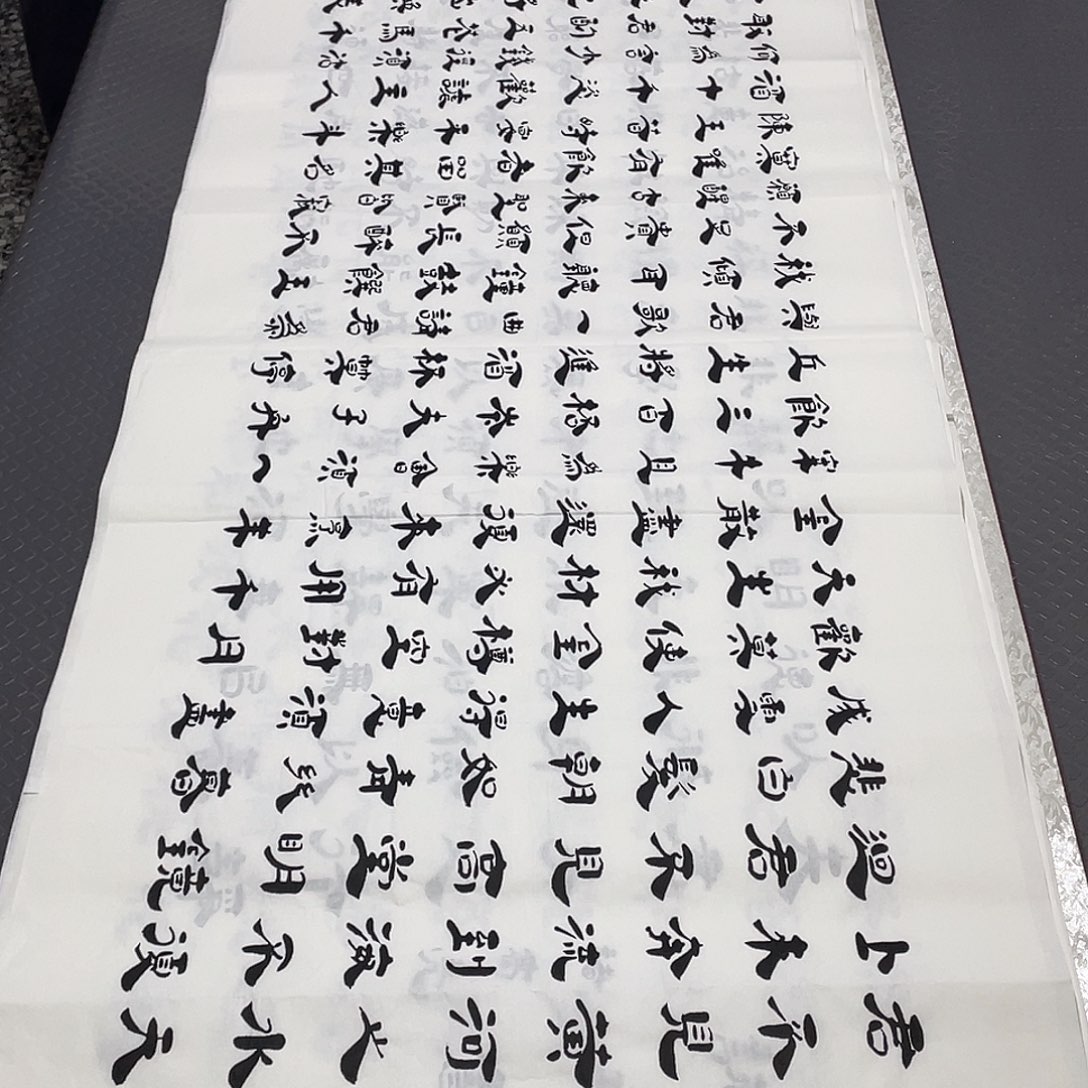 君不見黃河之水天
上来奔流到海不復
迴君不見高堂明鏡
悲白髮朝如青絲暮
成雪人生得意須盡
歡莫使金樽空對月
天生我材必有用千
金散盡還復來烹羊
宰牛且為樂會須一
飲三百杯岑夫子丹
丘生將進酒杯莫停
與君歌一曲請君為
我傾耳聽鐘鼓饌玉
不足貴但願長醉不
願醒古來聖賢皆寂
寞唯有飲者留其名
陳王昔時宴平樂斗
酒十千恣歡謔主人
何為言少錢徑須沽
取對君酌五花馬千